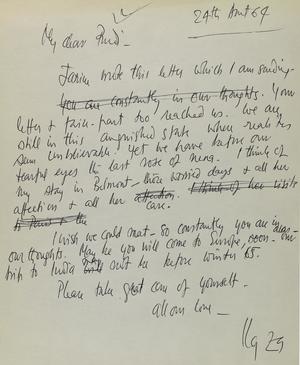 24th Août 64
My dear Rudi -
Janine wrote this letter which I am sending -
You are constantly in our thoughts. Your
letter & faire-part too reached us. We are
still in this anguished state when realities
seem unbelievable. Yet we have before our
tearful eyes the last rose of Nena. I think of
my stay in Belmont - those worried days & all her
affection & all her affection care. I think of her visits
to Paris & the
I wish we could meet - So constantly you are in
our thoughts. May be you will come to Europe soon - our
trip to India will not be before winter 65.
Please take great care of yourself -
All our love -